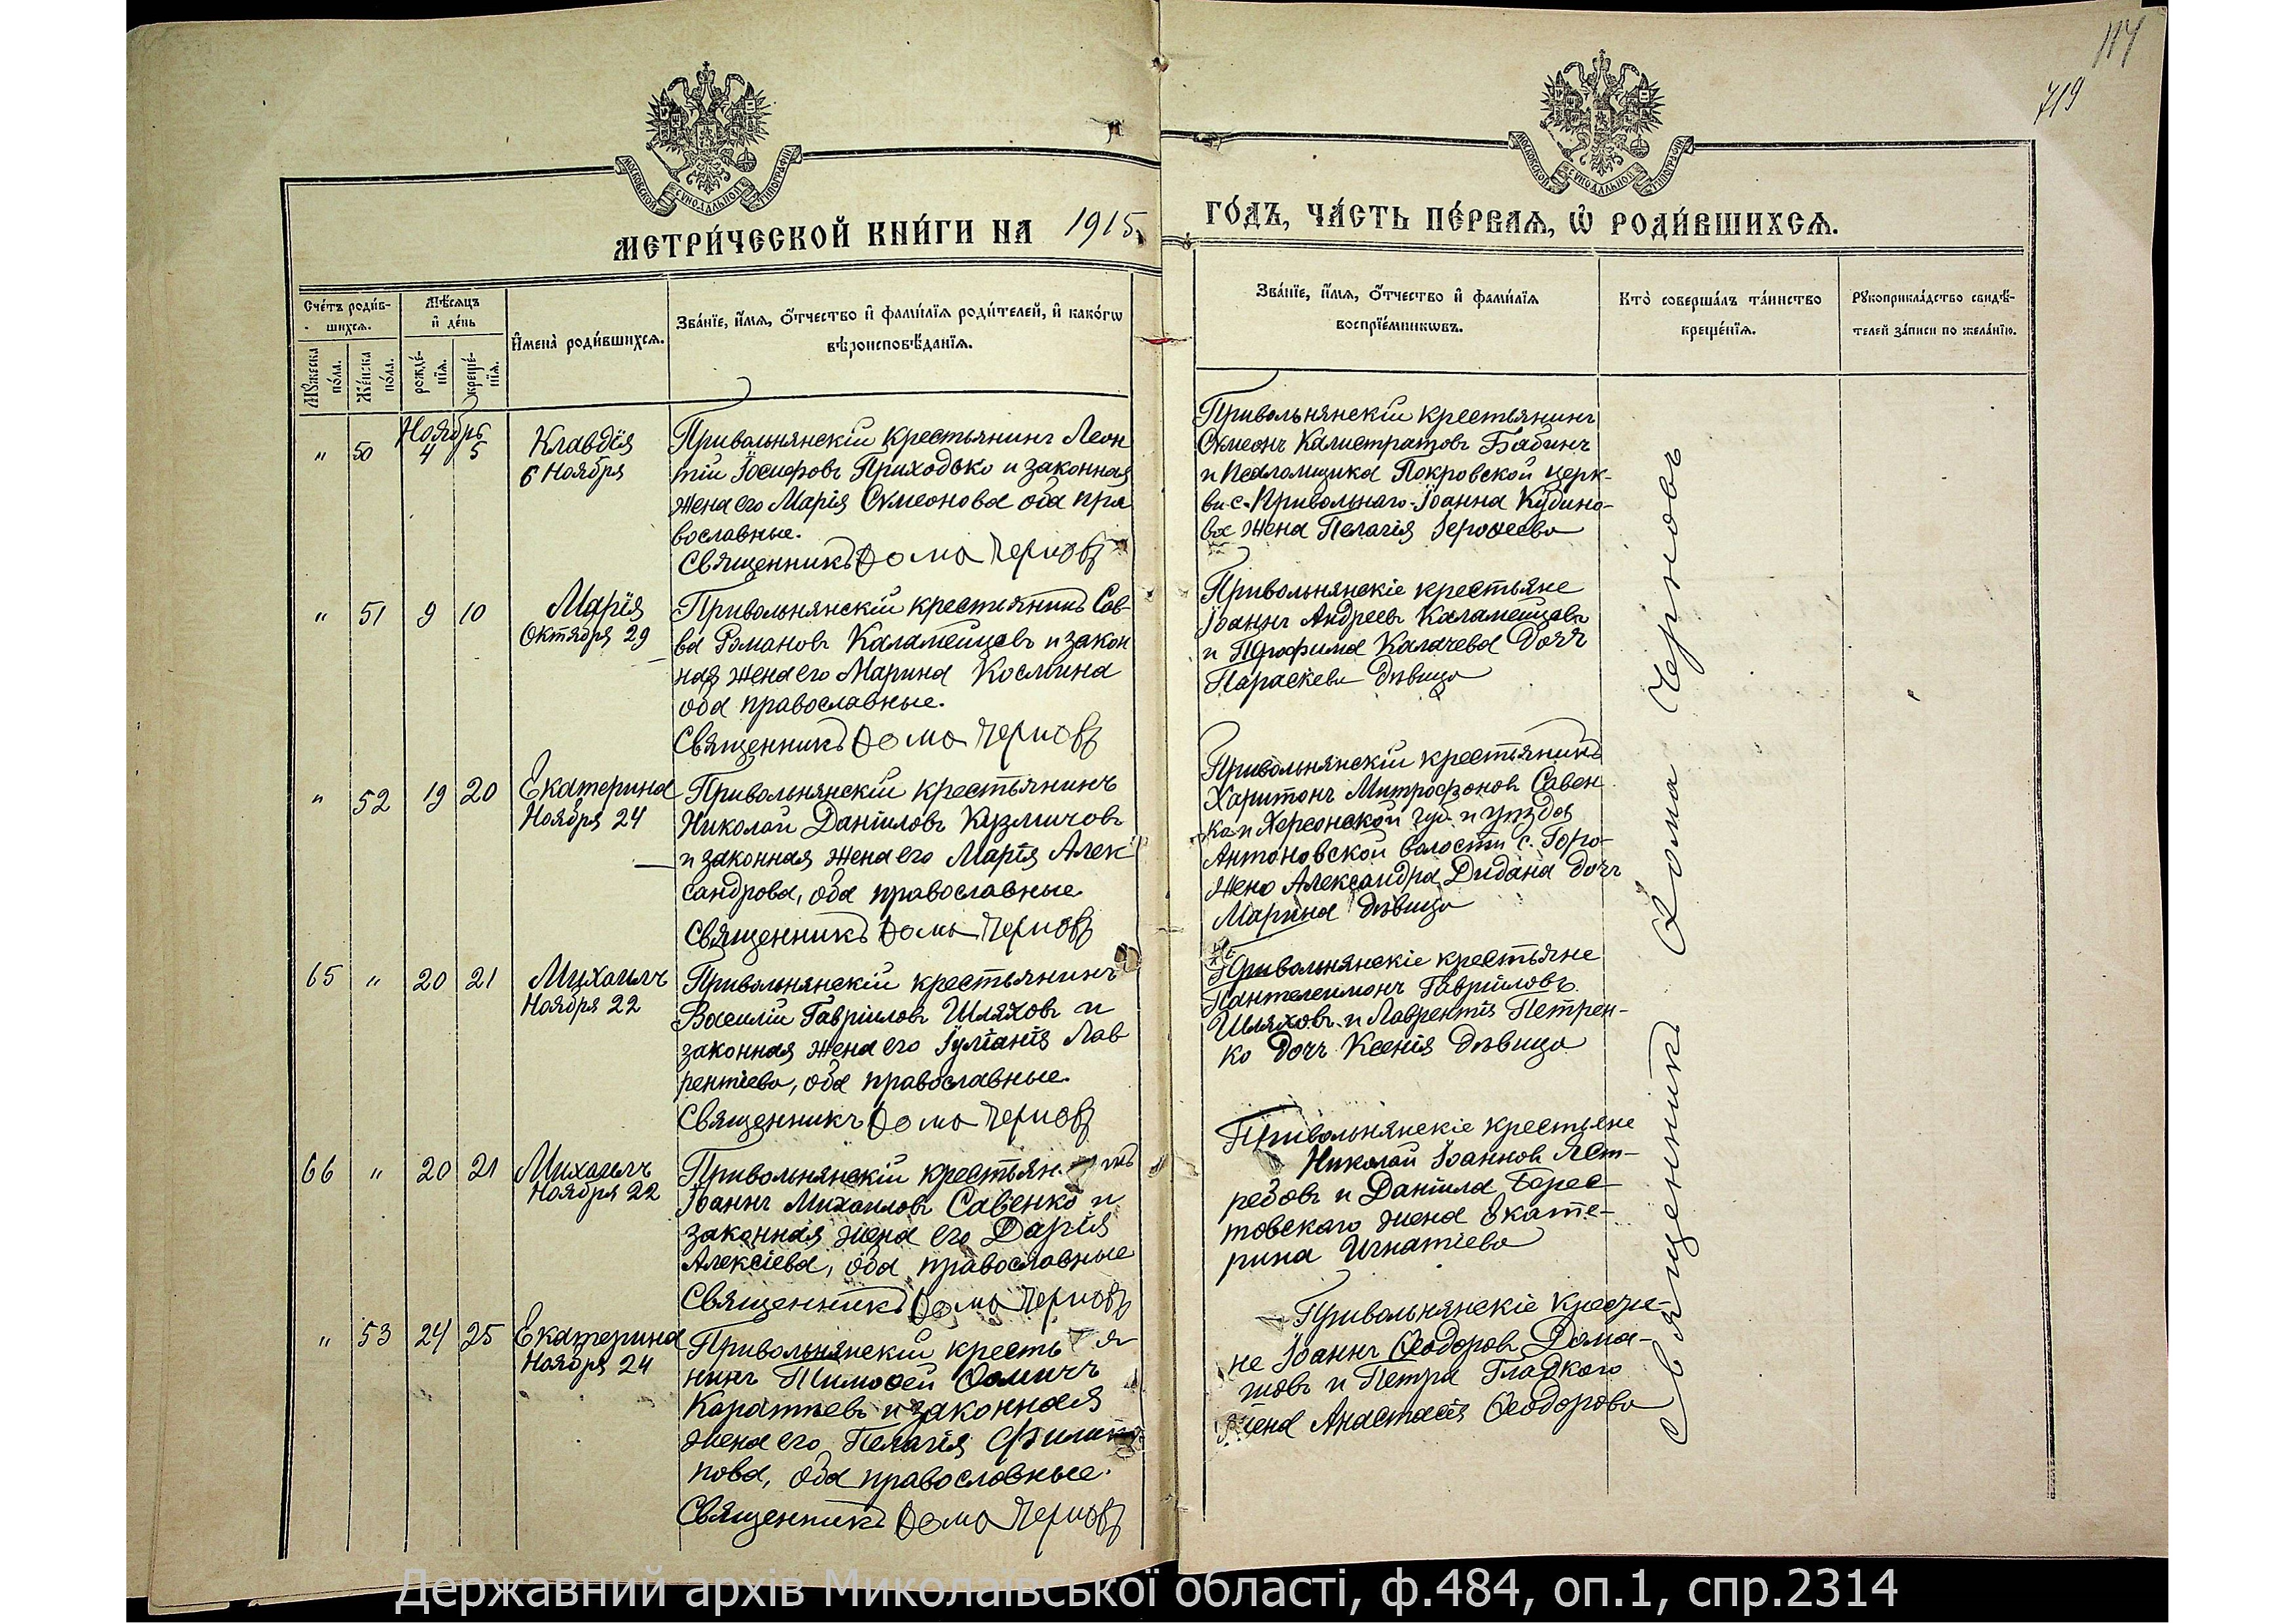 114
719
МОСКОВСКОЙ СѴНОДАЛЬНОЙ ТИПОГРАФІИ
МОСКОВСКОЙ СѴНОДАЛЬНОЙ ТИПОГРАФІИ
МЕТРИ́ЧЕСКОЙ КНИ́ГИ НА 1915
ГО́ДЪ, ЧА́СТЬ ПЕ́РВАЯ, Ѡ РОДИ́ВШИХСЯ.
Сче́тъ роди́в-
шихся.
Мѣ́сяцъ
и де́нь
Мꙋ́жеска
по́ла.
Же́нска
по́ла.
рожде́-
нїя.
креще́-
нїя.
Имена̀ роди́вшихся.
Зва́нїе, и́мя, о́тчество и фами́лїя роди́телей, и како́гѡ
вѣроисповѣ́данїя.
Зва́нїе, и́мя, о́тчество и фами́лїя
воспрїе́мникѡвъ.
Кто̀ соверша́лъ та́инство
креще́нїя.
Рꙋкоприкла́дство свидѣ́-
телей за́писи по жела́нїю.
Ноябрь
" 50 4 5
Клавдія
6 Ноября
Привольнянскій крестьянинъ Леон
тій Іосифовъ Приходько и законная
жена его Марія Сѵмеонова оба пра
вославные.
Священникъ Ѳома Черновъ
Привольнянскій крестьянинъ
Сѵмеонъ Калистратовъ Бабинъ
и псаломщика Покровской церк-
ви с. Привольнаго Іоанна Кудино-
ва жена Пелагія Іероѳеева
" 51 9 10
Марія
Октября 29
Привольнянскій крестьянинъ Сав-
ва Романовъ Каламейцевъ и закон
ная жена его Марина Космина
оба православные.
Священникъ Ѳома Черновъ
Привольнянскіе крестьяне
Іоаннъ Андреевъ Каламейцевъ
и Трофима Калачева дочь
Параскева дѣвица
" 52 19 20
Екатерина
Ноября 24
Привольнянскій крестьянинъ
Николай Даніиловъ Кузмичовъ
и законная жена его Марія Алек
сандрова, оба православные
Священникъ Ѳома Черновъ
Привольнянскій крестьянинъ
Харитонъ Митрофановъ Савен
ко и Херсонской губ. и уѣзда
Антоновской волости с. Горо-
жено Александра Дидана дочь
Марина дѣвица
65 " 20 21
Михаилъ
Ноября 22
Привольнянскій крестьянинъ
Василій Гавріиловъ Шляховъ и
законная жена его Іуліанія Лав
рентіева, оба православные.
Священникъ Ѳома Черновъ
Привольнянскіе крестьяне
Пантелеимонъ Гавріиловъ
Шляховъ и Лаврентія Петрен-
ко дочь Ксенія дѣвица
66 " 20 21
Михаилъ
Ноября 22
Привольнянскій крестьян инъ
Іоаннъ Михаиловъ Савенко и
законная жена его Дарія
Алексіева, оба православные
Священникъ Ѳома Черновъ
Привольнянскіе крестьяне
Николай Іоанновъ Яст-
ребовъ и Даніила Берес
товскаго жена Екате-
рина Игнатіева
" 53 24 25
Екатерина
Ноября 24
Привольнянскій кресть я
нинъ Тимоѳей Ѳомичъ
Каратѣевъ и законная
жена его Пелагія Филип
пова, оба православные.
Священникъ Ѳома Черновъ
Привольнянскіе крестья-
не Іоаннъ Ѳеодоровъ Дома-
товъ и Петра Гладкого
жена Анастасія Ѳеодорова
Священникъ Ѳома Черновъ
Державний архів Миколаївської області, ф.484, оп.1, спр.2314